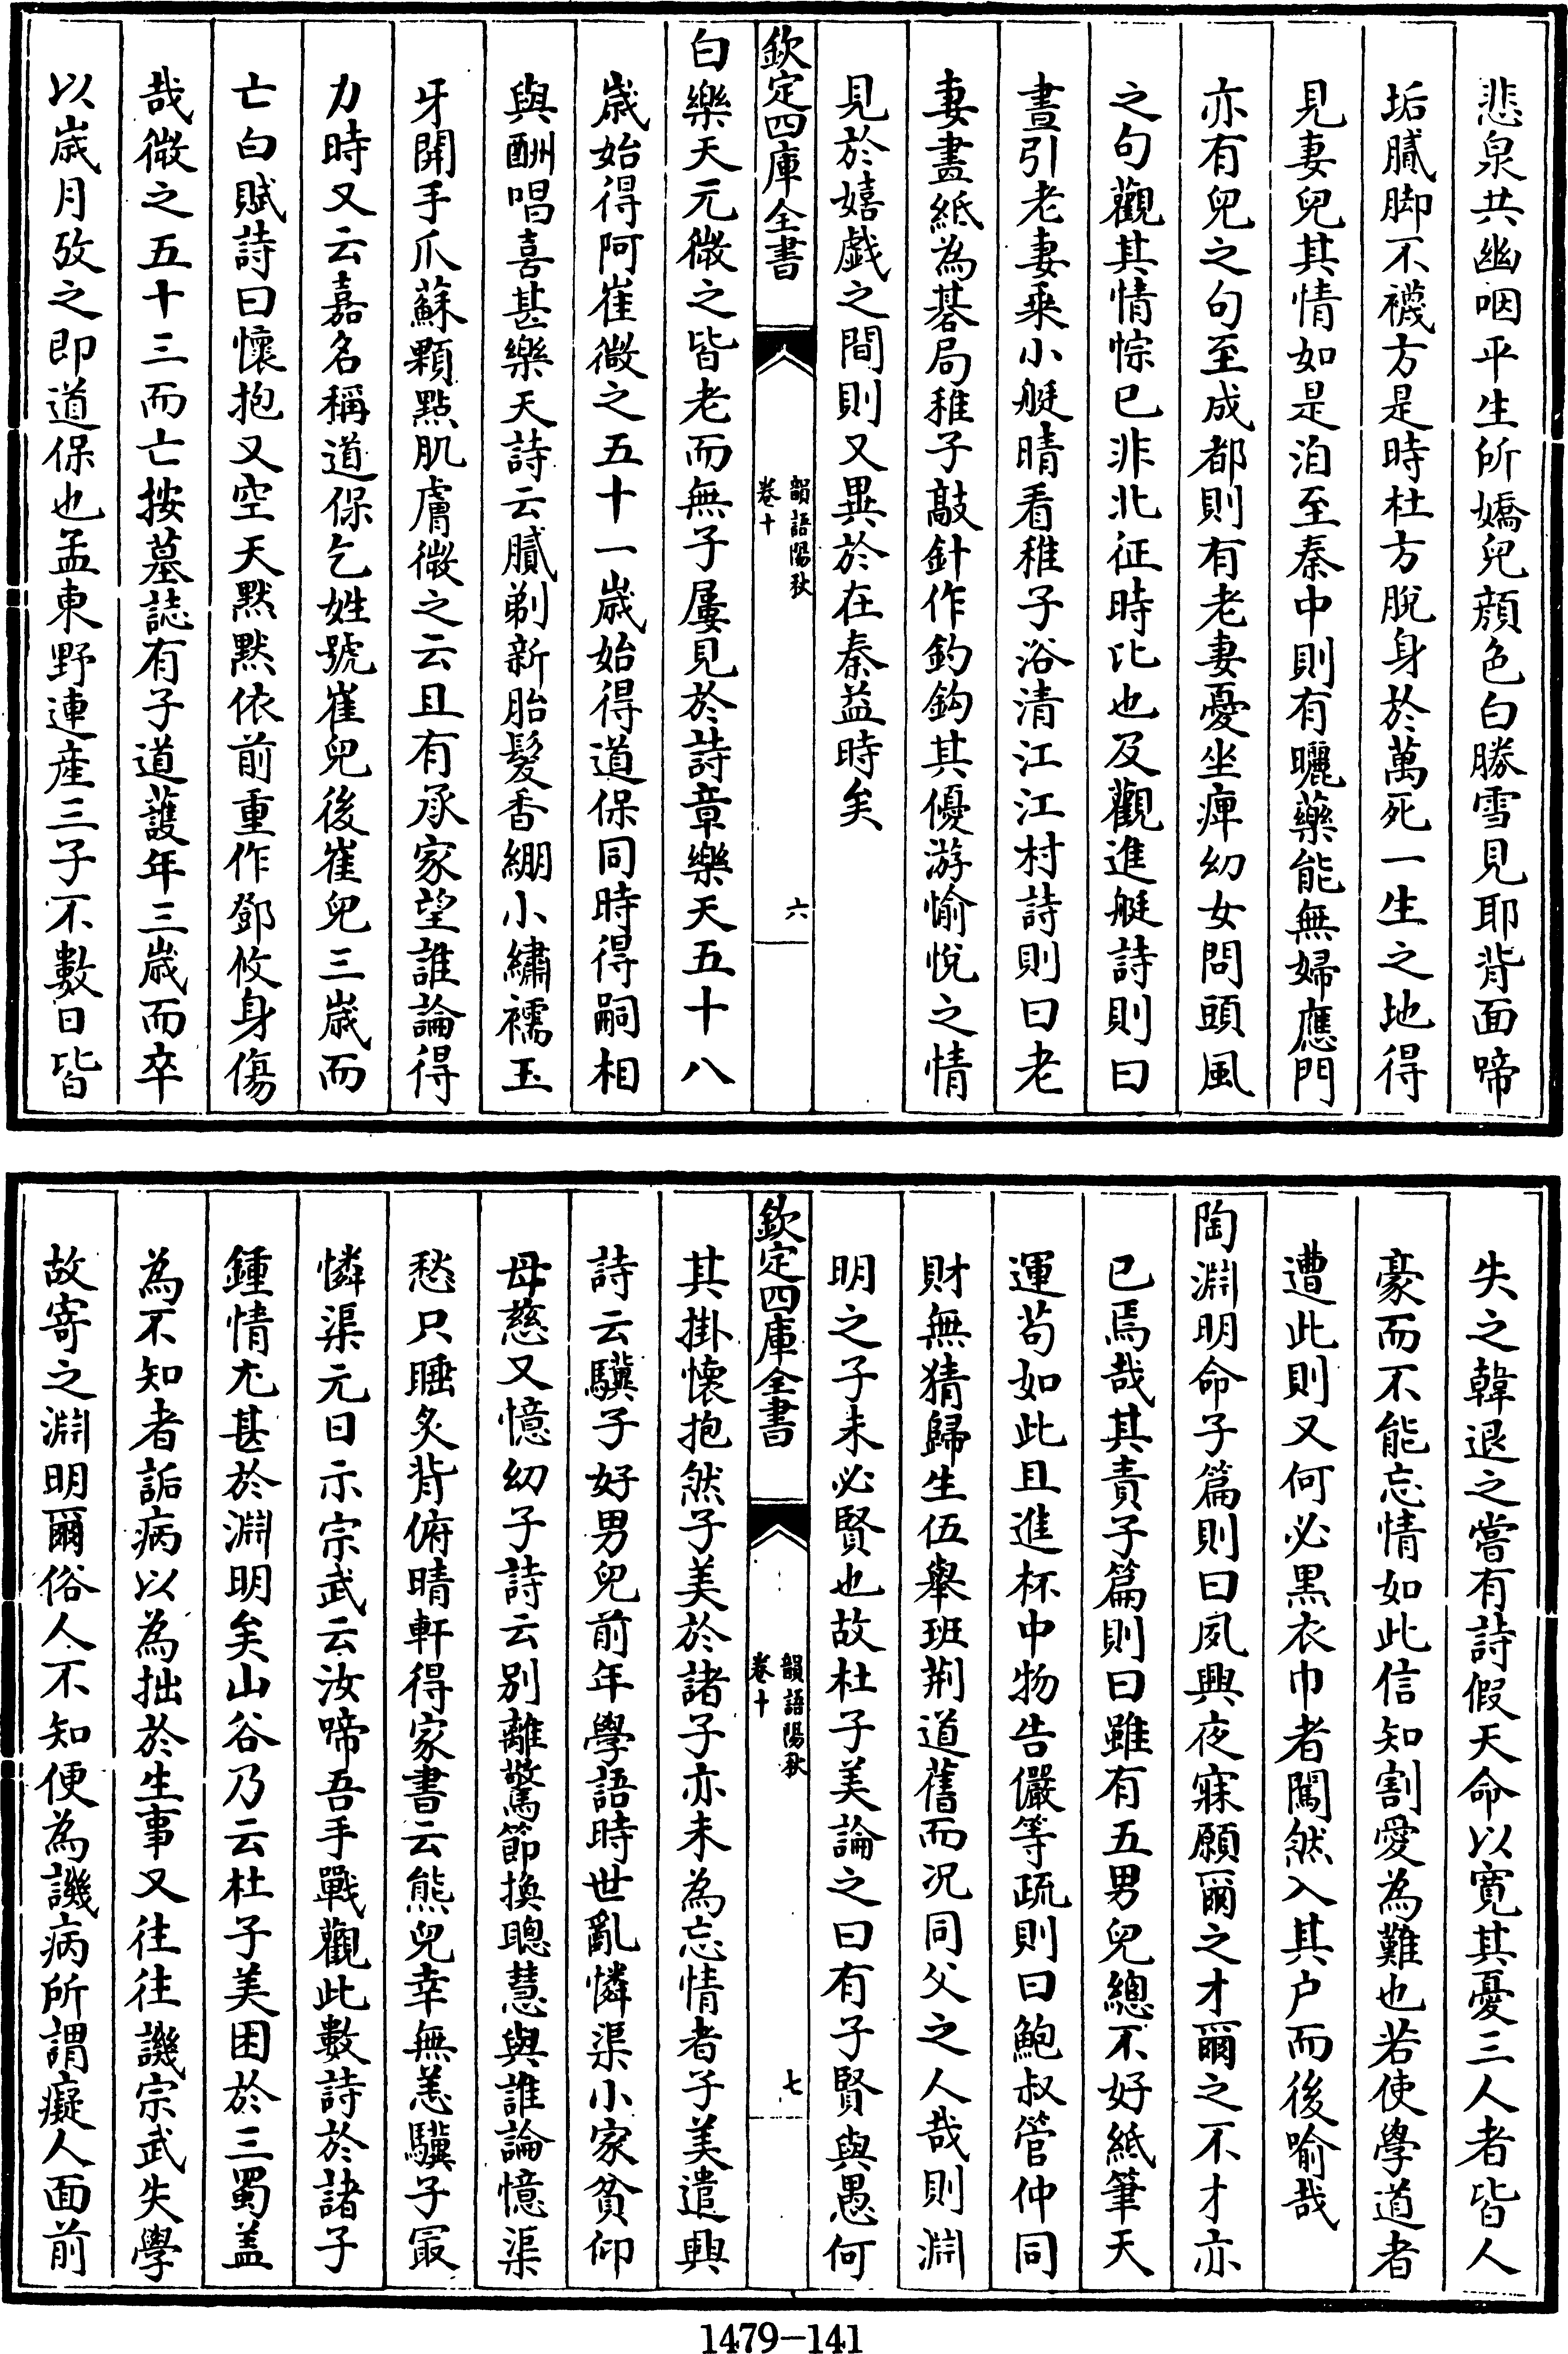 悲泉共幽咽平生所嬌兒顔色白勝雪見耶背面啼
垢膩脚不襪方是時杜方脫身於萬死一生之地得
見妻兒其情如是洎至秦中則有曬藥能無婦應門
亦有兒之句至成都則有老妻憂坐痺幼女問頭風
之句觀其情悰已非北征時比也及觀進艇詩則曰
晝引老妻乘小艇晴看稚子浴清江江村詩則曰老
妻畫紙為棊局稚子敲針作釣鈎其優游愉悅之情
見於嬉戲之間則又異於在秦益時矣
欽定四庫全書
韻語陽秋
卷十
六
白樂天元微之皆老而無子屢見於詩章樂天五十八
歳始得阿崔微之五十一歳始得道保同時得嗣相
與酬唱喜甚樂天詩云膩剃新胎髮香綳小繡襦玉
牙開手爪蘇顆點肌膚微之云且有承家望誰論得
力時又云嘉名稱道保乞姓號崔兒後崔兒三歳而
亡白賦詩曰懷抱又空天黙黙依前重作鄧攸身傷
哉微之五十三而亡按墓誌有子道護年三歳而卒
以歳月攷之即道保也孟東野連産三子不數日皆
失之韓退之嘗有詩假天命以寛其憂三人者皆人
豪而不能忘情如此信知割愛為難也若使學道者
遭此則又何必黒衣巾者闖然入其户而後喻哉
陶淵明命子篇則曰夙興夜寐願爾之才爾之不才亦
已焉哉其責子篇則曰雖有五男兒總不好紙筆天
運茍如此且進杯中物告儼等疏則曰鮑叔管仲同
財無猜歸生伍舉班荆道舊而况同父之人哉則淵
明之子未必賢也故杜子美論之曰有子賢與愚何
欽定四庫全書
韻語陽秋
卷十
七
其掛懷抱然子美於諸子亦未為忘情者子美遣興
詩云驥子好男兒前年學語時世亂憐渠小家貧仰
母慈又憶幼子詩云别離驚節換聰慧與誰論憶渠
愁只睡炙背俯晴軒得家書云熊兒幸無恙驥子㝡
憐渠元日示宗武云汝啼吾手戰觀此數詩於諸子
鍾情尤甚於淵明矣山谷乃云杜子美困於三蜀盖
為不知者詬病以為拙於生事又往往譏宗武失學
故寄之淵明爾俗人不知便為譏病所謂癡人面前
1479-141